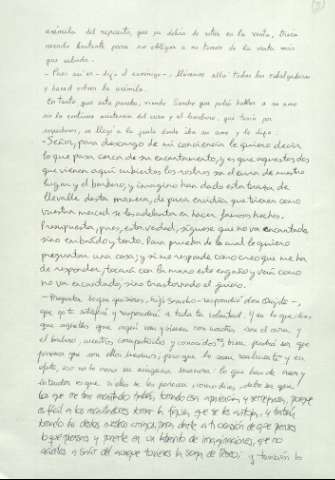 acémila del repuesto, que ya debía de estar en la venta, traía
recado bastante para no obligar a no tomar de la venta más
que cebada.
—Pues así es —dijo el canónigo—, llévense allá todas las cabalgaduras
y haced volver la acémila.
En tanto que esto pasaba, viendo Sancho que podía hablar a su amo
sin la continua asistencia del cura y el barbero, que tenía por
sospechosos, se llegó a la jaula donde iba su amo y le dijo:
—Señor, para descargo de mi conciencia le quiero decir
lo que pasa cerca de su encantamento, y es que aquestos dos
que vienen aquí cubiertos los rostros son el cura de nuestro
lugar y el barbero, y imagino han dado esta traza de
llevalle desta manera, de pura envidia que tienen como
vuestra merced se les adelanta en hacer famosos hechos.
Presupuesta, pues, esta verdad, síguese que no va encantado,
sino embaído y tonto. Para prueba de lo cual le quiero
preguntar una cosa; y si me responde como creo que me ha
de responder, tocará con la mano este engaño y verá como
no va encantado, sino trastornado el juicio.
—Pregunta lo que quisieres, hijo Sancho —respondió don Quijote—,
que yo te satisfaré y responderé a toda tu voluntad. Y en lo que dices
que aquellos que aquí van y vienen con nosotros son el cura y
el barbero, nuestros compatriotos y conocidos, bien podrá ser que
parezca que son ellos mesmos; pero que lo sean realmente y en
efeto, eso no lo creas en ninguna manera: lo que has de creer y
entender es que si ellos se les parecen, como dices, debe de ser que
los que me han encantado habrán tomado esa apariencia y semejanza, porque
es fácil a los encantadores tomar la figura que se les antoja, y habrán
tomado las destos nuestros amigos, para darte a ti ocasión de que pienses
lo que piensas y ponerte en un laberinto de imaginaciones, que no
aciertes a salir del aunque tuvieses la soga de Teseo; y también lo